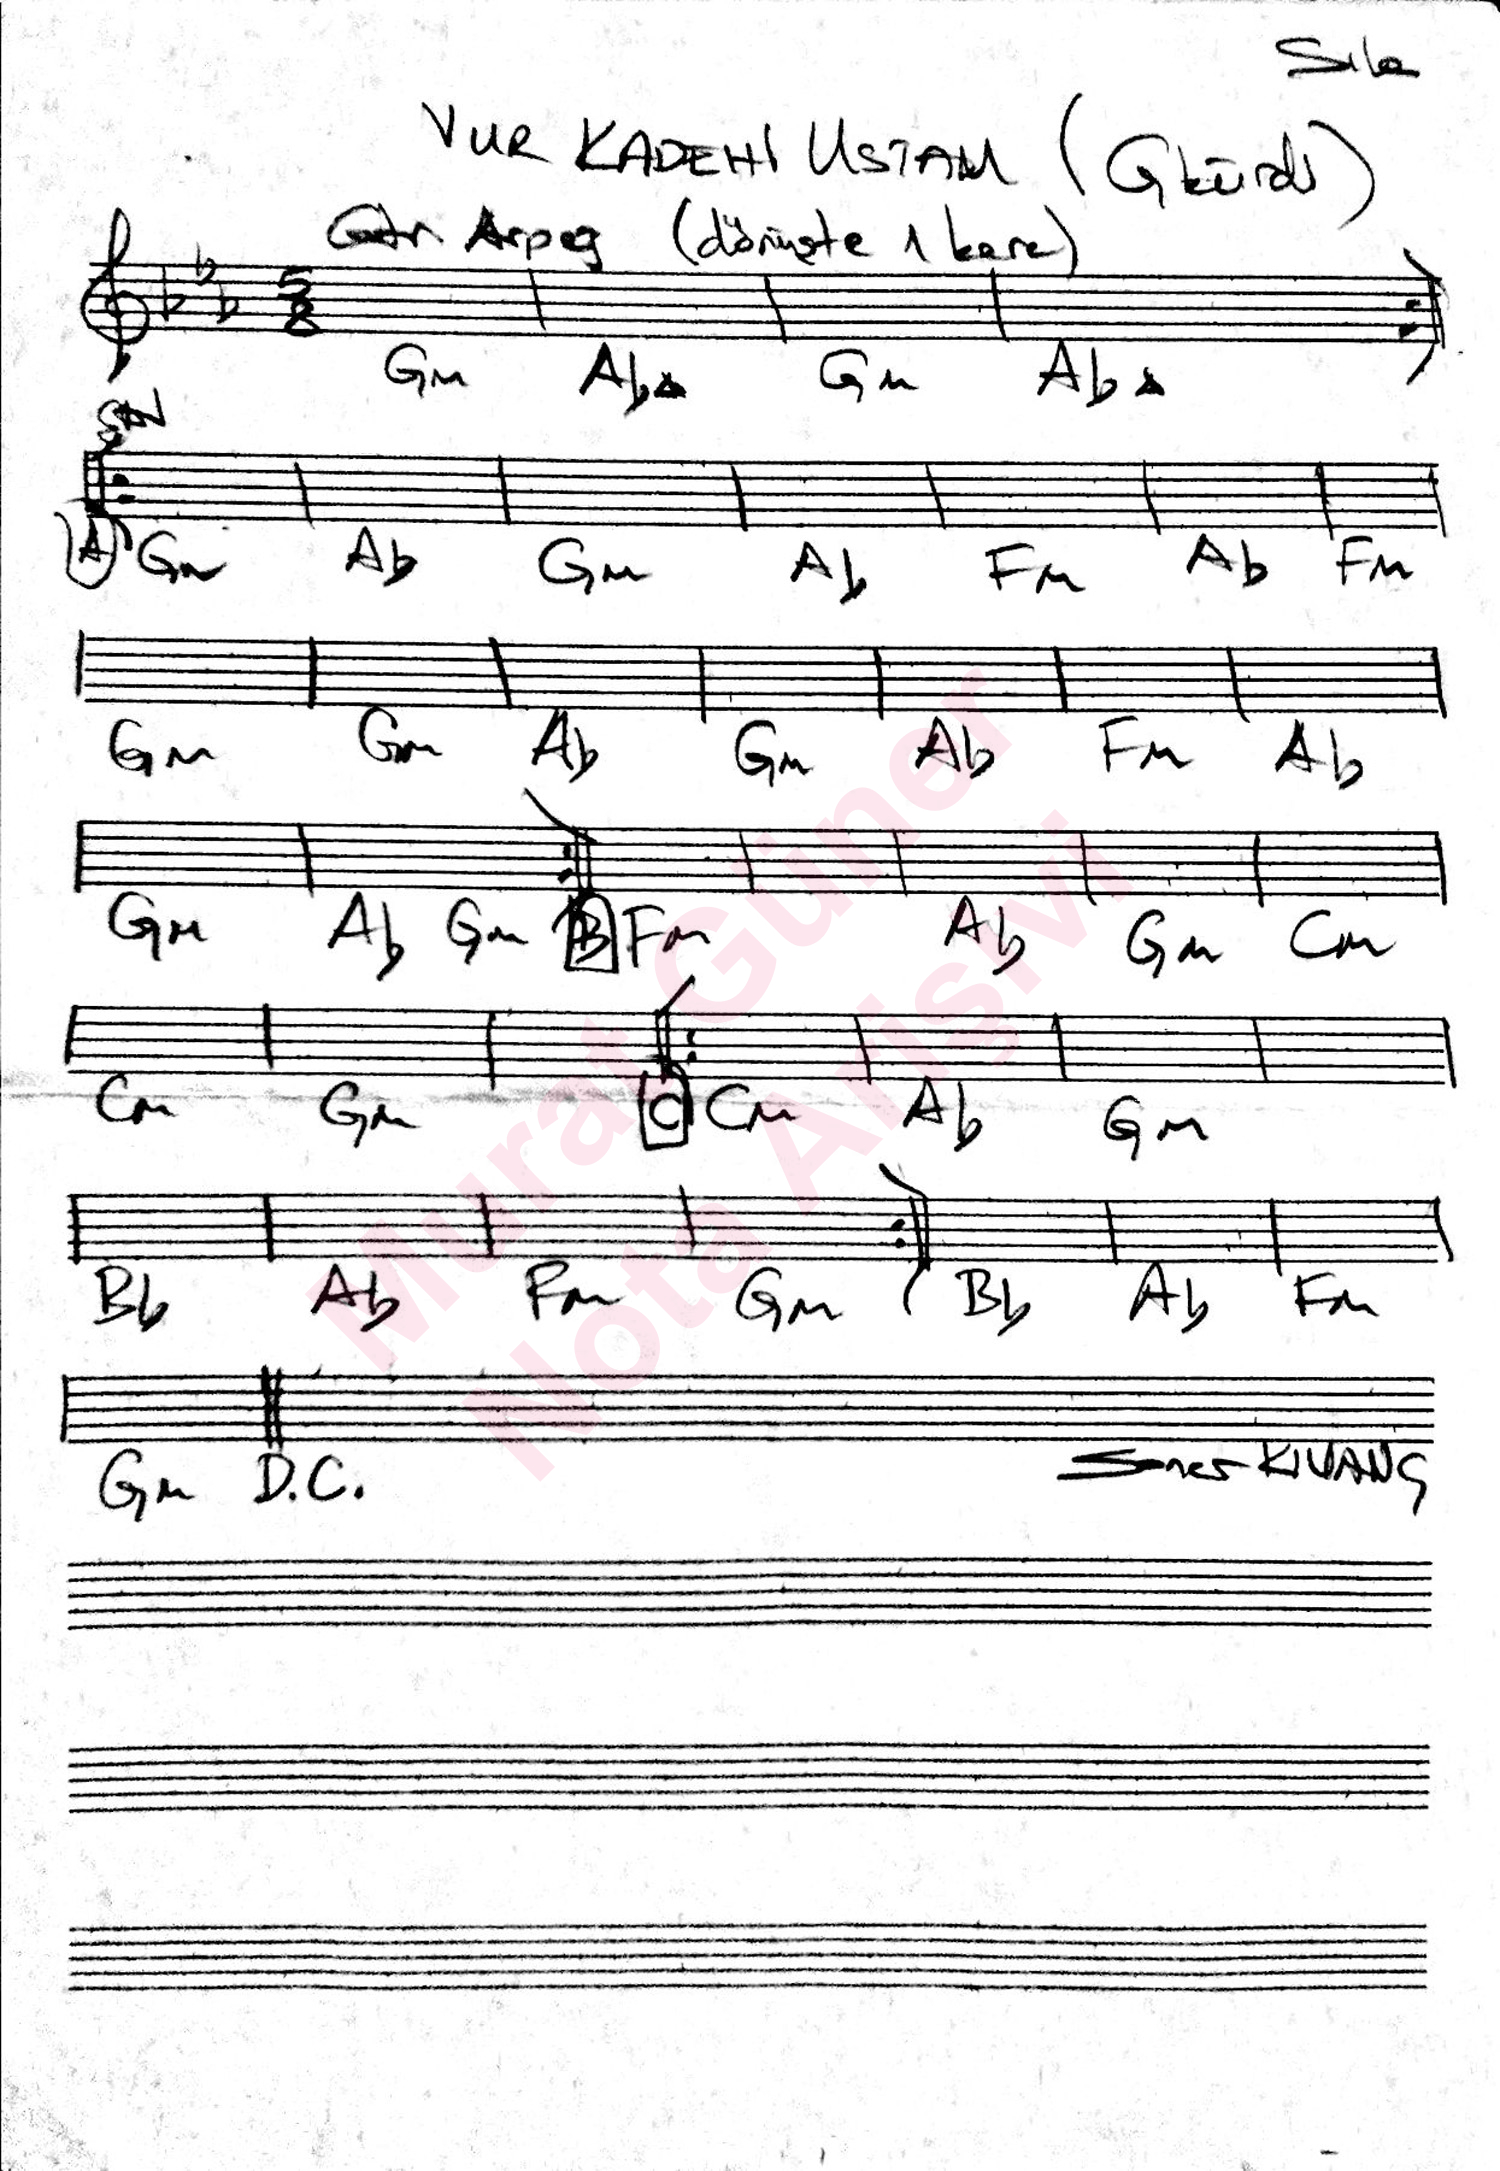 Sıla
VUR KADEHİ USTAM (Gkürdi)
Gtr Arpeg (dönüşte 1 kere)
5
8
Gm Ab▵ Gm Ab▵
ŞAN
A Gm Ab Gm Ab Fm Ab Fm
Gm Gm Ab Gm Ab Fm Ab
Gm Ab Gm B Fm Ab Gm Cm
Cm Gm C Cm Ab Gm
Bb Ab Fm Gm Bb Ab Fm
Gm D.C.
Soner KIVANÇ
Murat Güner
Nota Arişivi